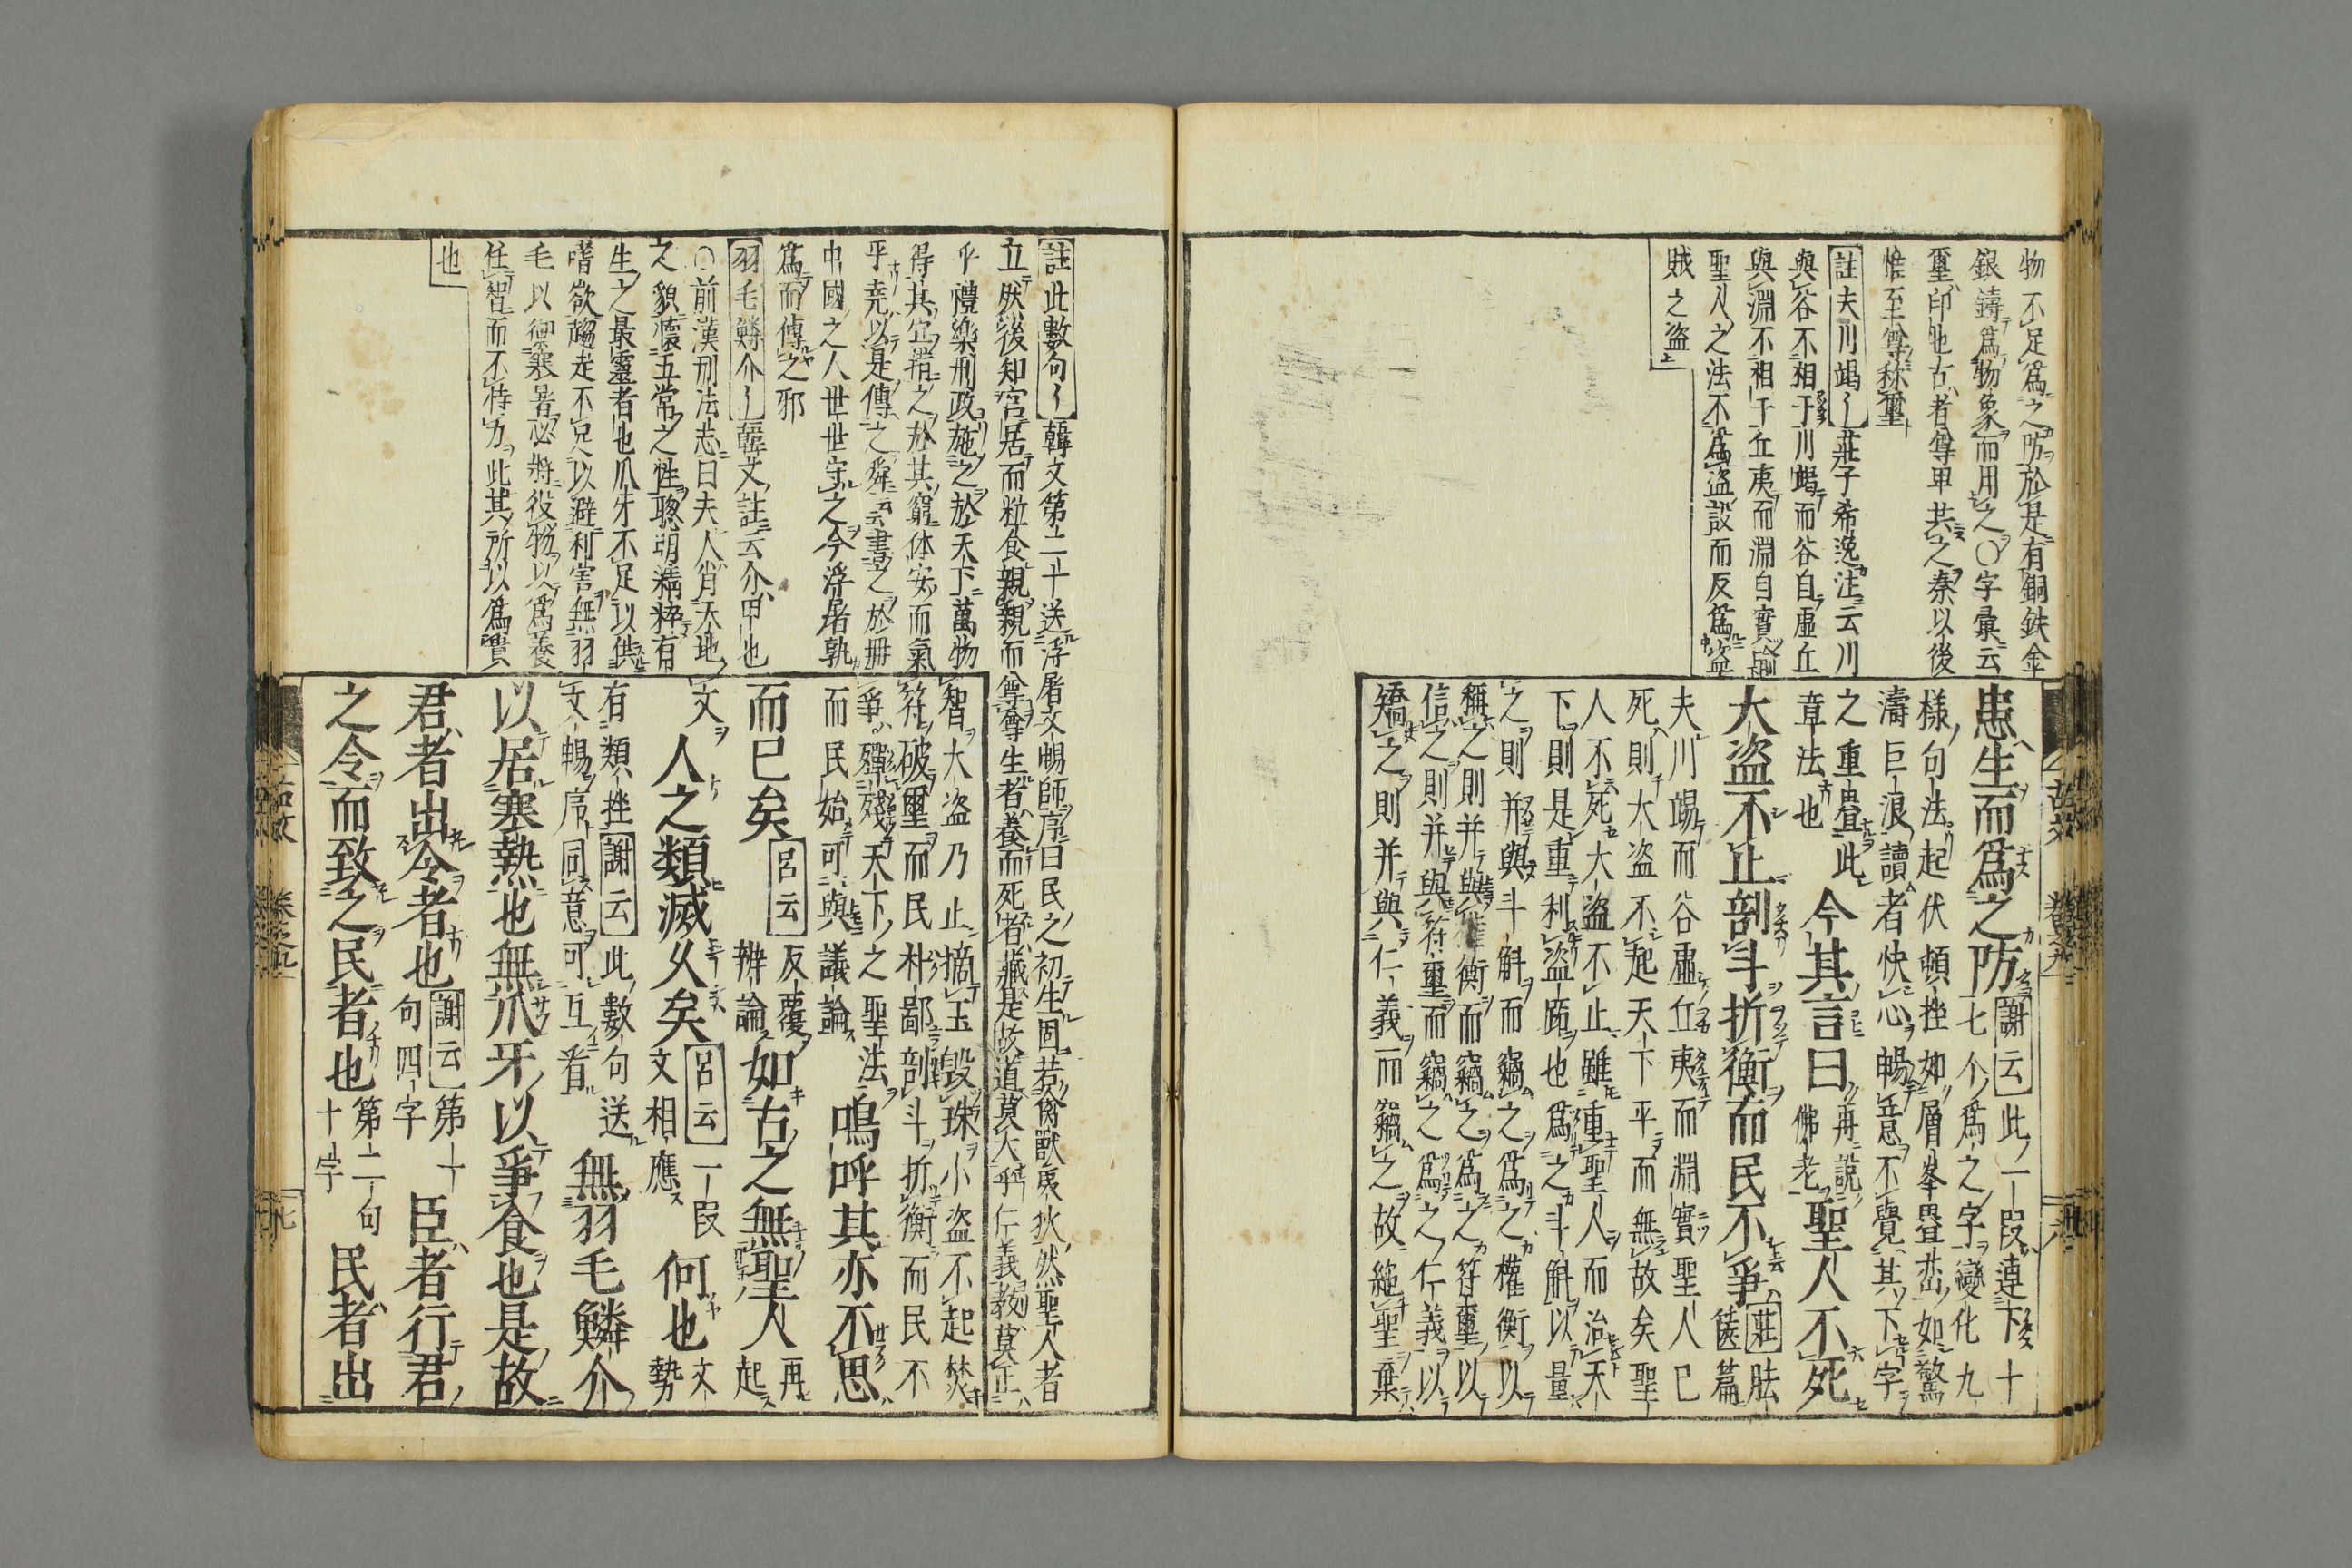 物不足爲之防於是有銅鉄金
銀鑄爲物象而用之〇字彙云
璽印也古者尊甲共之秦以後
惟至尊称璽
註夫川竭〱莊子希逸注云川
與谷不相于川竭而谷自虛丘
與淵不相于丘夷而淵自實喻
聖人之法不爲盗設而反爲盗
賊之盗
患生而爲之防謝云此一段連下十
七个爲之字變化九
樣句法起伏頓挫如層峯疊巒如驚
濤巨浪讀者快心暢意不覺其下字
之重疊此
章法也
今其言曰再說
佛老聖人不死
大盗不止剖斗折衡而民不爭莊胠
篋篇
夫川竭而谷虛丘夷而淵實聖人已
死則大盗不起天下平而無故矣聖
人不死大盗不止雖重聖人而治天
下則是重利盗跖也爲之斗斛以量
之則并與斗斛而竊之爲之權衡以
稱之則并與權衡而竊之爲之符璽以
信之則并與符璽而竊之爲之仁義以
矯之則并與仁義而竊之故絕聖棄
註此數句〱韓文第二十送浮屠文暢師序曰民之初生固若禽獸夷狄然聖人者
立然後知宮居而粒食親親而尊尊生者養而死者藏是故道莫大乎仁義敎莫正
乎禮樂刑政施之於天下萬物
得其宜措之於其躬体安而氣
平堯以是傳之舜云云書之於冊
中國之人世世守之今浮屠孰
爲而傳之邪
羽毛鱗介〱韓文註云介甲也
〇前漢刑法志曰夫人肖天地
之貌懷五常之性聡明精粹有
生之最靈者也爪牙不足以供
嗜欲趨走不足以避利害無羽
毛以禦寒暑必將役物以爲養
任智而不恃力此其所以爲貴
也
智大盗乃止擿玉毀珠小盗不起焚
符破璽而民朴鄙剖斗折衡而民不
爭殫殘天下之聖法
而民始可與議論
嗚呼其亦不思
而已矣呂云反覆
辨論如古之無聖人再
起
文人之類滅久矣呂云一段
文相應何也文
勢
有類挫謝云此數句送
文暢序同意可互看
無羽毛鱗介
以居寒熱也無爪牙以爭食也是故
君者出令者也謝云第十
句四字臣者行君
之令而致之民者也第二句
十字民者出